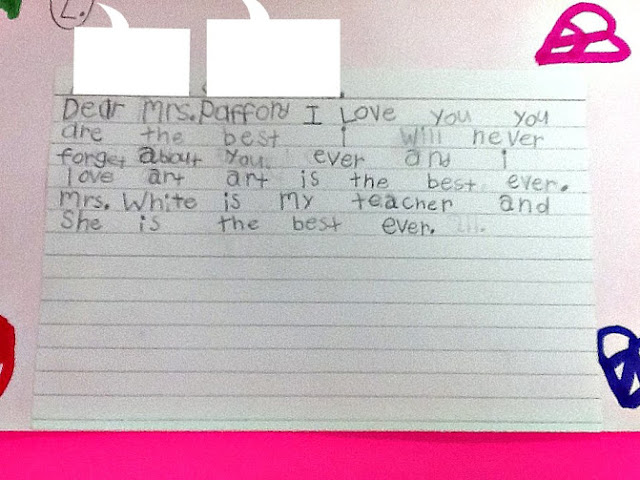 L.
Dear Mrs. Pafford I Love you you
are the best i will never
forget about you. ever and i
love art art is the best ever.
Mrs. White is my teacher and
She is the best ever.